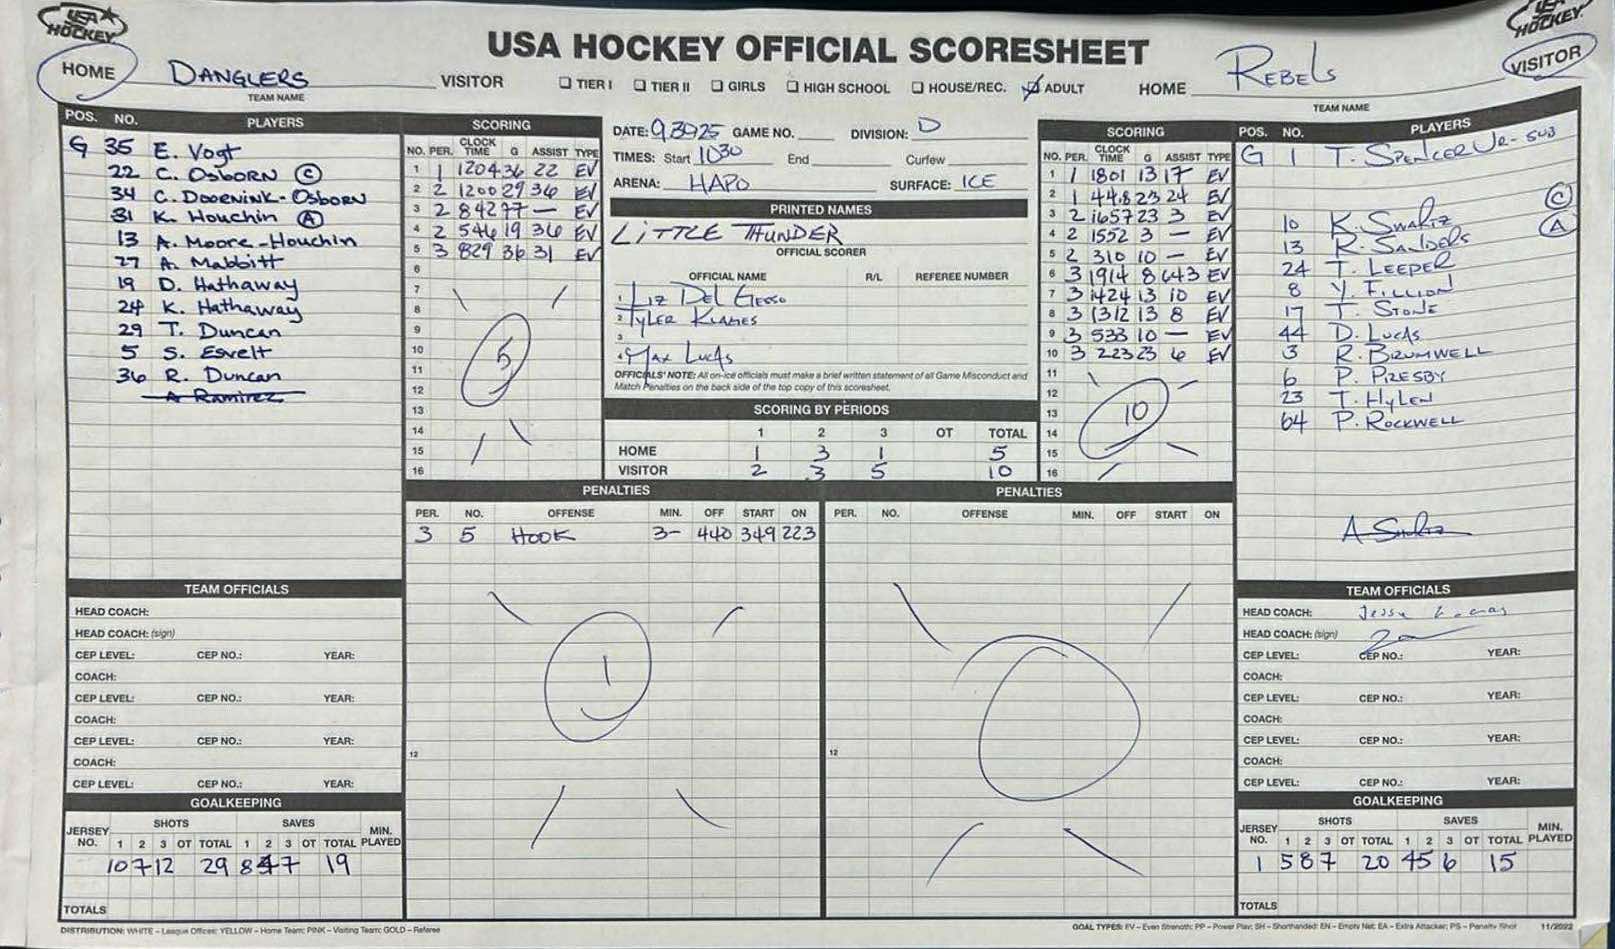 USA HOCKEY
USA HOCKEY
USA HOCKEY OFFICIAL SCORESHEET
HOME DANGLERS VISITOR
TEAM NAME
☐ TIER I ☐ TIER II ☐ GIRLS ☐ HIGH SCHOOL ☐ HOUSE/REC. ☑ ADULT
HOME REBELS VISITOR
TEAM NAME
POS. NO. PLAYERS
G 35 E. Vogt
22 C. OSBORN (C)
34 C. DOORNINK-OSBORN
31 K. Houchin (A)
13 A. Moore-Houchin
27 A. Mabbitt
19 D. Hathaway
24 K. Hathaway
29 T. Duncan
5 S. Esvelt
36 R. Duncan
A Ramirez
SCORING
NO. PER. CLOCK TIME G ASSIST TYPE
1 1 1204 36 22 EV
2 2 1200 29 36 EV
3 2 842 77 — EV
4 2 546 19 36 EV
5 3 829 36 31 EV
6
7
8
9
10
11
12
13
14
15
16
5
DATE: 93025 GAME NO. DIVISION: D
TIMES: Start 1030 End Curfew
ARENA: HAPO SURFACE: ICE
PRINTED NAMES
LITTLE THUNDER
OFFICIAL SCORER
OFFICIAL NAME R/L REFEREE NUMBER
1 LIZ DEL
2 TYLER KLAMES
3
4 MAX LUCAS
OFFICIALS' NOTE: All on-ice officials must make a brief written statement of all Game Misconduct and
Match Penalties on the back side of the top copy of this scoresheet.
SCORING BY PERIODS
1 2 3 OT TOTAL
HOME 1 3 1 5
VISITOR 2 3 5 10
SCORING
NO. PER. CLOCK TIME G ASSIST TYPE
1 1 1801 13 17 EV
2 1 44.8 23 24 EV
3 2 1657 23 3 EV
4 2 1552 3 — EV
5 2 310 10 — EV
6 3 1914 8 643 EV
7 3 1424 13 10 EV
8 3 1312 13 8 EV
9 3 533 10 — EV
10 3 223 23 6 EV
11
12
13
14
15
16
10
POS. NO. PLAYERS
G 1 T. SPENCER JR-SUB
10 K. SWARTZ (C)
13 R. SANDERS (A)
24 T. LEEPER
8 Y. FILLION
17 T. STONE
44 D. LUCAS
3 R. BRUMWELL
6 P. PRESBY
23 T. HYLEN
64 P. ROCKWELL
PENALTIES
PER. NO. OFFENSE MIN. OFF START ON
3 5 HOOK 3- 440 349 223
12
1
PENALTIES
PER. NO. OFFENSE MIN. OFF START ON
12
TEAM OFFICIALS
HEAD COACH:
HEAD COACH: (sign)
CEP LEVEL: CEP NO.: YEAR:
COACH:
CEP LEVEL: CEP NO.: YEAR:
COACH:
CEP LEVEL: CEP NO.: YEAR:
COACH:
CEP LEVEL: CEP NO.: YEAR:
GOALKEEPING
JERSEY NO. SHOTS 1 2 3 OT TOTAL SAVES 1 2 3 OT TOTAL MIN. PLAYED
10 7 12 29 8 4 7 19
TOTALS
TEAM OFFICIALS
HEAD COACH: Jesse
HEAD COACH: (sign)
CEP LEVEL: CEP NO.: YEAR:
COACH:
CEP LEVEL: CEP NO.: YEAR:
COACH:
CEP LEVEL: CEP NO.: YEAR:
COACH:
CEP LEVEL: CEP NO.: YEAR:
GOALKEEPING
JERSEY NO. SHOTS 1 2 3 OT TOTAL SAVES 1 2 3 OT TOTAL MIN. PLAYED
1 5 8 7 20 4 5 6 15
TOTALS
DISTRIBUTION: WHITE – League Offices; YELLOW – Home Team; PINK – Visiting Team; GOLD – Referee
GOAL TYPES: EV – Even Strength; PP – Power Play; SH – Shorthanded; EN – Empty Net; EA – Extra Attacker; PS – Penalty Shot 11/2022